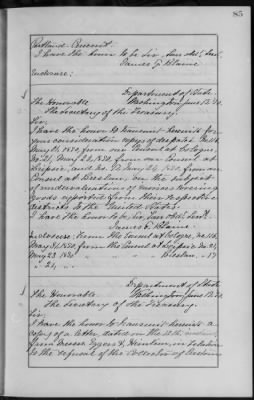 85
Portland Cement.
I have the honor to be Sir, Your obt. Servt.
James G. Blaine
Enclosure:
Department of State
Washington, June 13, '90.
The Honorable
The Secretary of the Treasury.
Sir:
I have the honor to transmit herewith for
your consideration copies of despatch No. 116,
May 31, 1890, from our Consul at Cologne,
No. 21, May 23, 1890, from our Consul at
Leipsic, and No. 17, May 21, 1890, from our
Consul at Breslau, on the subject
of undervaluations of various
goods exported from their respective
districts to the United States.
I have the honor to be, Sir, Your obdt. Servt.
James G. Blaine.
Enclosure: From the Consul at Cologne, No. 116,
May 31, 1890. from the Consul at Leipsic, No. 21,
May 23, 1890. " " " " Breslau, " 17
" 21, "
Department of State
Washington, June 13, '90.
The Honorable
The Secretary of the Treasury.
Sir:
I have the honor to transmit herewith a
copy of a letter, dated on the 12th instant,
from Messrs. Eggers & Heinlein, in relation
to the refusal of the Collector of Customs